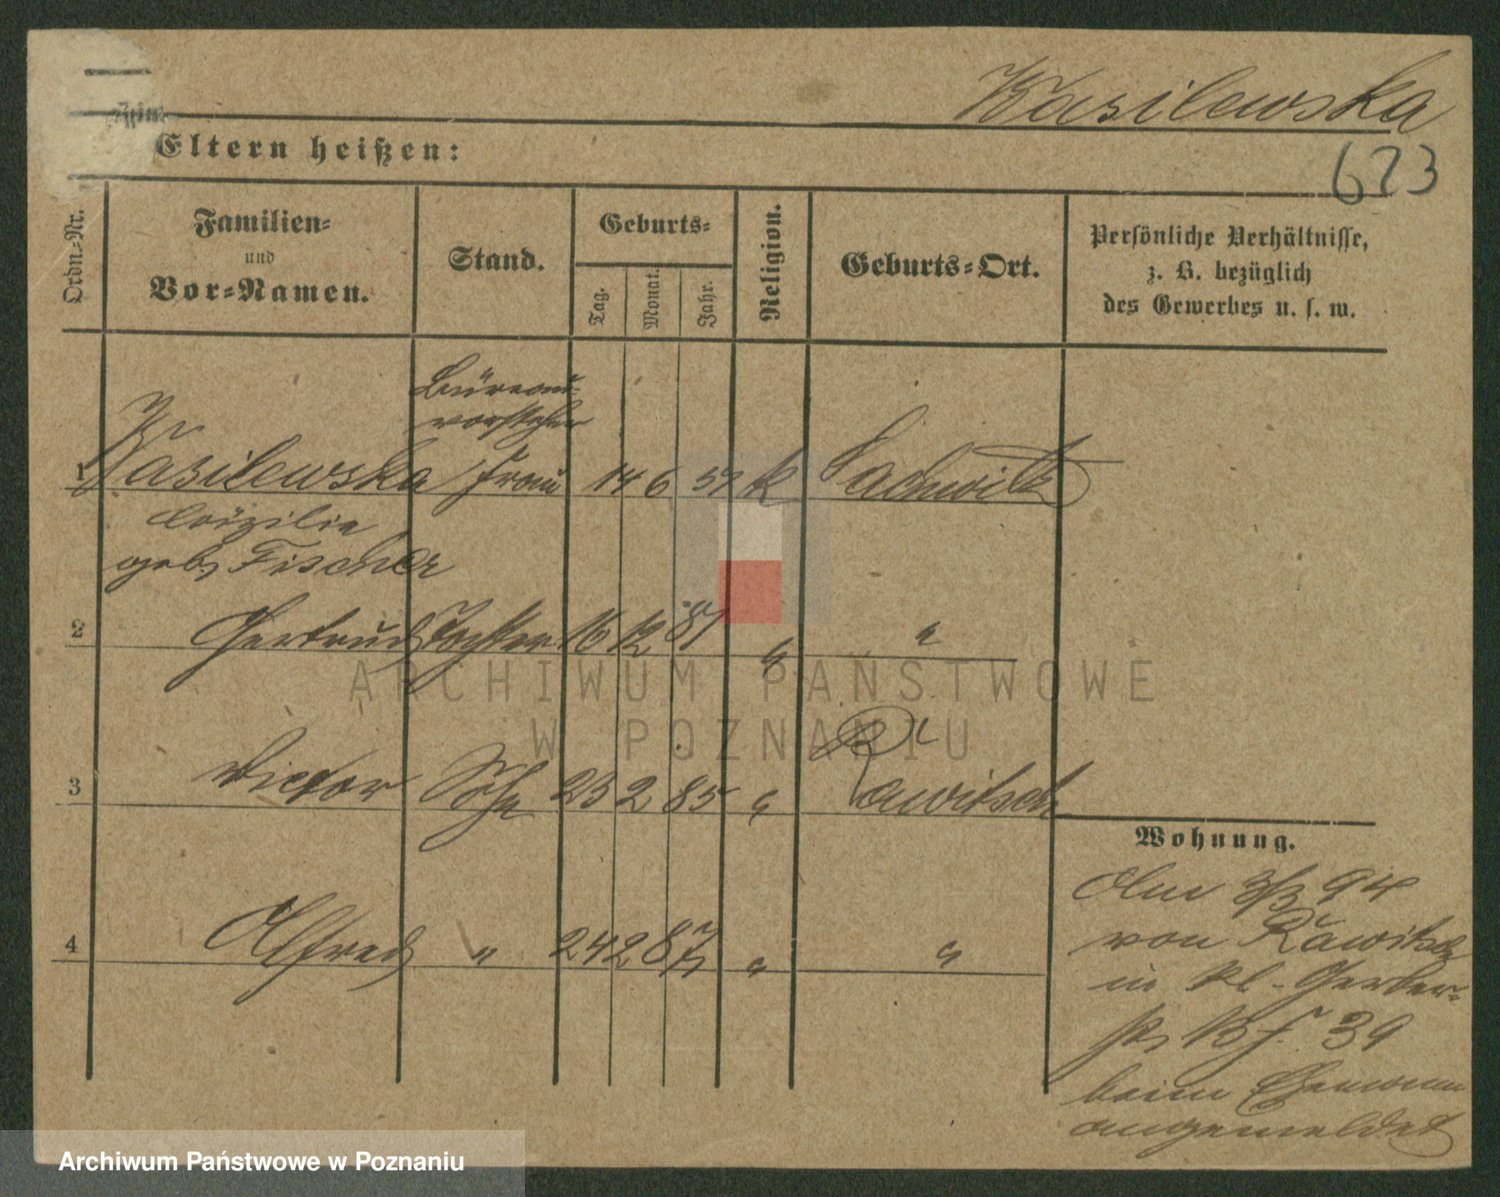 Wasilewska
Eltern heißen:
673
Ordn.-Nr.
Familien-
und
Vor-Namen.
Stand.
Geburts-
Tag.
Monat.
Jahr.
Religion.
Geburts-Ort.
Persönliche Verhältnisse,
z. B. bezüglich
des Gewerbes u. s. w.
Büreau-
vorsteher
1 Wasilewska Frau 14 6 57 k
Cäzilie
geb. Fischer
2 Gertrud Tochter 16 12 81 " "
3 Victor Sohn 23 2 85 " Rawitsch
4 Alfred " 24 2 87 " "
Wohnung.
Am 3/3 94
von Rawitsch
in Kl. Gerber-
str. 39
beim Ehemann
angemeldet
ARCHIWUM PAŃSTWOWE
W POZNANIU
Archiwum Państwowe w Poznaniu